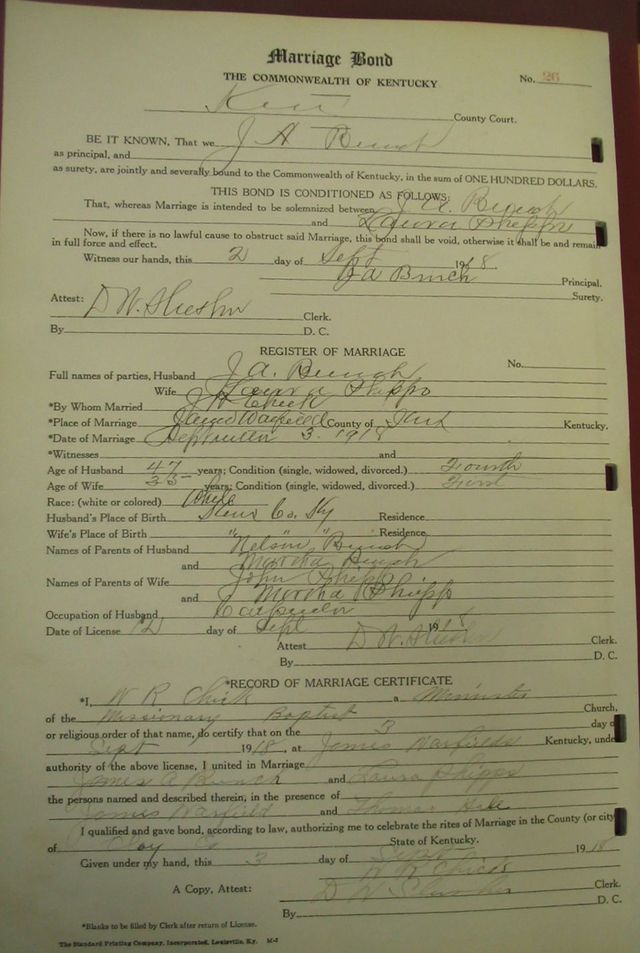 Marriage Bond
THE COMMONWEALTH OF KENTUCKY
No. 26
County Court.
BE IT KNOWN, That we J A Bunch
as principal, and
as surety, are jointly and severally bound to the Commonwealth of Kentucky, in the sum of ONE HUNDRED DOLLARS.
THIS BOND IS CONDITIONED AS FOLLOWS:
That, whereas Marriage is intended to be solemnized between J. A. Bunch
and Laura Phipps
Now, if there is no lawful cause to obstruct said Marriage, this bond shall be void, otherwise it shall be and remain
in full force and effect.
Witness our hands, this 2 day of Sept 1918.
J A Bunch Principal.
Surety.
Attest: D W Clerk.
By D. C.
REGISTER OF MARRIAGE
Full names of parties, Husband J. A. Bunch No.
Wife Laura Phipps
*By Whom Married Chick
*Place of Marriage James Warfield County of Kentucky.
*Date of Marriage September 3. 1918
*Witnesses and
Age of Husband 47 years; Condition (single, widowed, divorced.) Fourth
Age of Wife 35 years; Condition (single, widowed, divorced.) First
Race: (white or colored) White
Husband's Place of Birth Co. Ky Residence
Wife's Place of Birth " " Residence
Names of Parents of Husband Nelson Bunch
and Martha Bunch
Names of Parents of Wife John Phipps
and Martha Phipps
Occupation of Husband Carpenter
Date of License 2 day of Sept 1918
Attest D W Clerk.
By D. C.
*RECORD OF MARRIAGE CERTIFICATE
*I, W R Chick a Minister
of the Missionary Baptist Church,
or religious order of that name, do certify that on the 3 day of
Sept 1918, at James Warfields Kentucky, under
authority of the above license, I united in Marriage
James A Bunch and Laura Phipps
the persons named and described therein, in the presence of
James Warfield and Thomas
I qualified and gave bond, according to law, authorizing me to celebrate the rites of Marriage in the County (or city)
of Clay Co State of Kentucky.
Given under my hand, this 3 day of Sept 1918
W R Chick
A Copy, Attest: D W Clerk.
By D. C.
*Blanks to be filled by Clerk after return of License.
The Standard Printing Company, Incorporated, Louisville, Ky. M-2